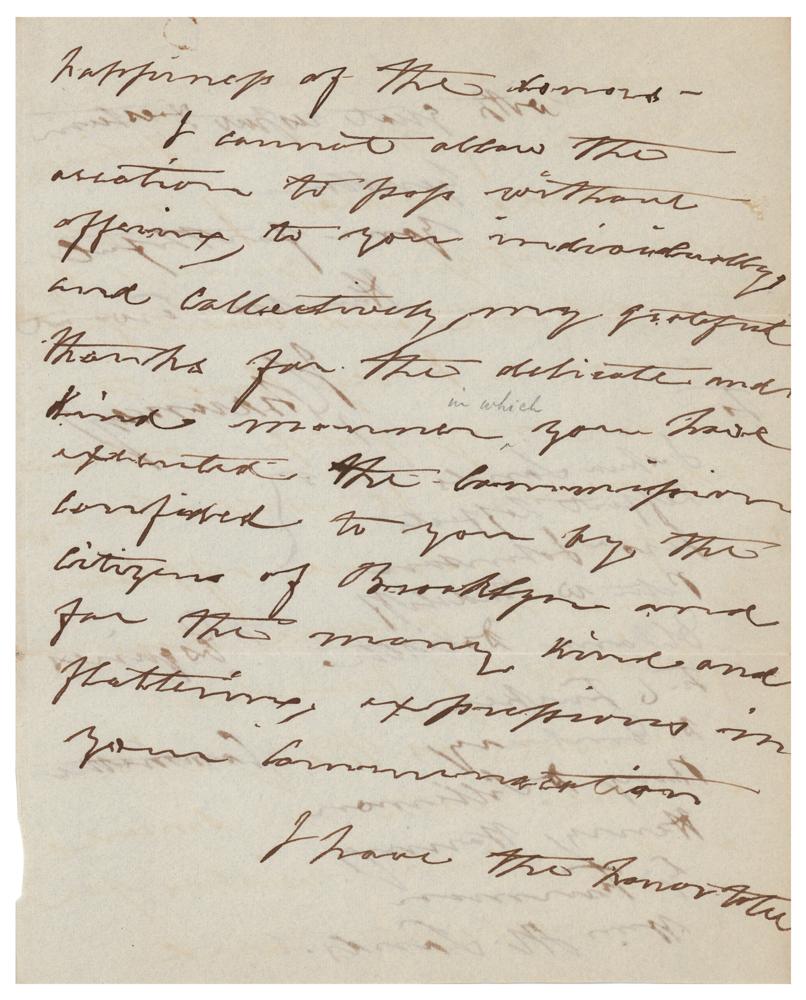 happiness of the donors -
I cannot allow the
occation to pass without
offering to you individually,
and collectively my grateful
thanks for the delicate and
in which
kind manner you have
executed the Commission
confided to you by the
Citizens of Brooklyn and
for the many kind and
flattering expressions in
your Communication
I have the honor to be